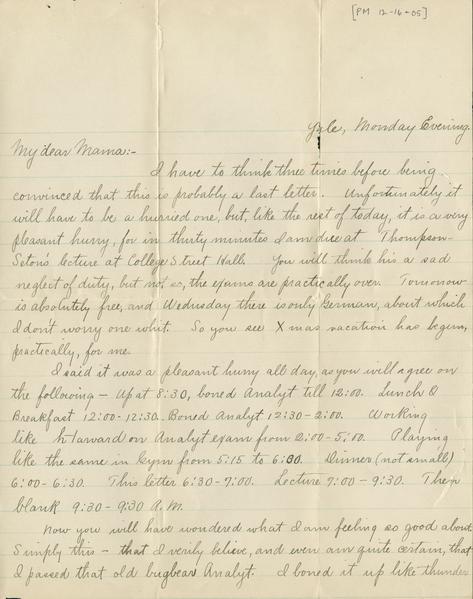 [PM 12-16-05]
Yale, Monday Evening.
My dear Mama:-
I have to think three times before being
convinced that this is probably a last letter. Unfortunately it
will have to be a hurried one, but, like the rest of today, it is a very
pleasant hurry, for in thirty minutes I am due at Thompson-
Seton's lecture at College Street Hall. You will think his a sad
neglect of duty, but not so, the exams are practically over. Tomorrow
is absolutely free, and Wednesday there is only German, about which
I don't worry one whit. So you see Xmas vacation has begun,
practically, for me.
I said it was a pleasant hurry all day, as you will agree on
the following - Up at 8:30, boned Analyt till 12:00. Lunch &
Breakfast 12:00-12:30. Boned Analyt 12:30-2:00. Working
like h--l award on Analyt exam from 2:00-5:00. Playing
like the same in Gym from 5:15 to 6:30. Dinner (not small)
6:00-6:30. This letter 6:30-7:00. Lecture 7:00-9:30. Then
blank 9:30-9:30 A.M.
Now you will have wondered what I am feeling so good about
Simply this - that I verily believe, and even am quite certain, that
I passed that old bugbear Analyt. I boned it up like thunder